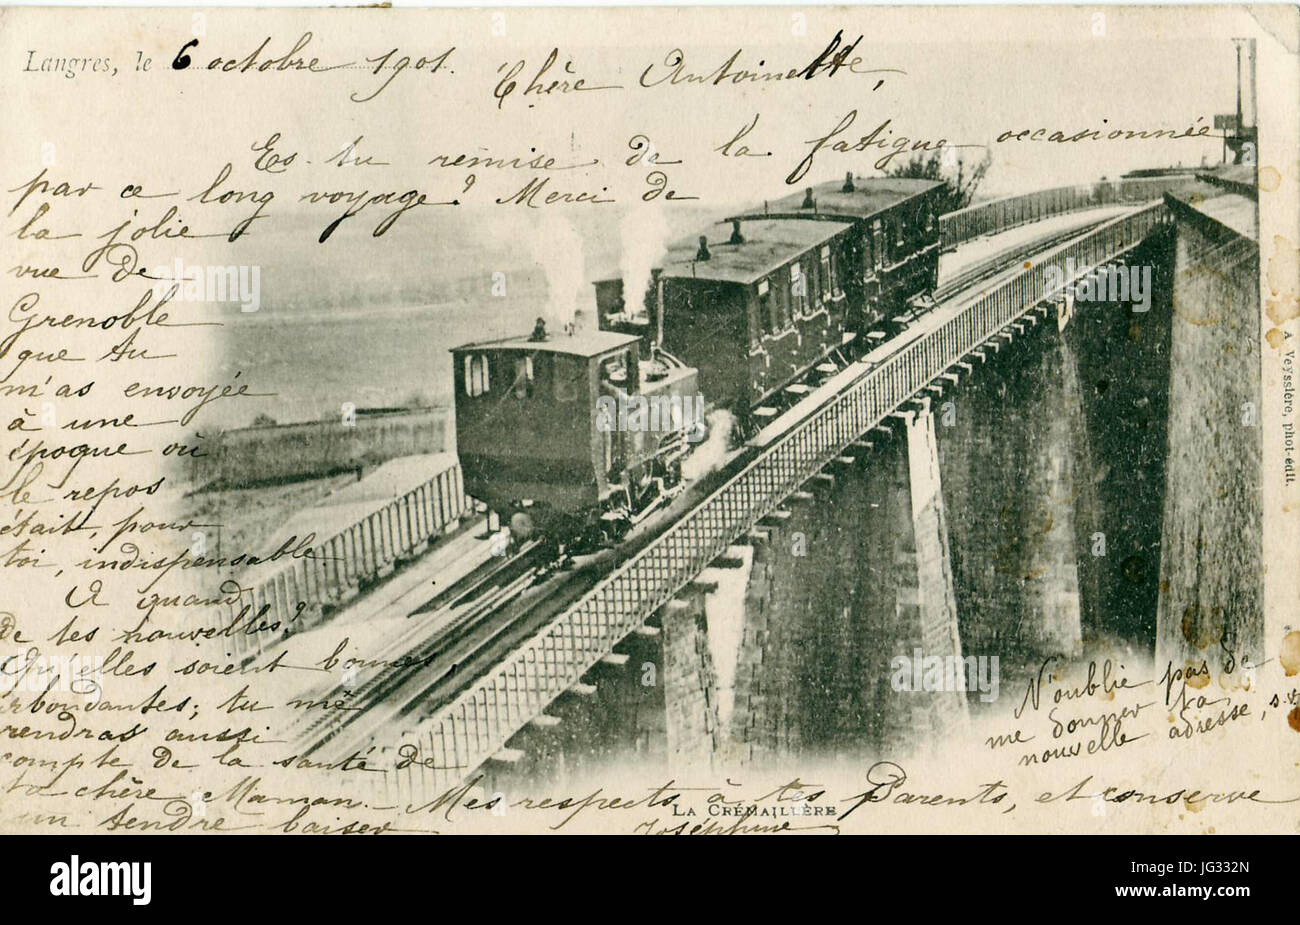 Langres, le 6 octobre 1901.
Chère Antoinette,
Es-tu remise de la fatigue occasionnée
par ce long voyage? Merci de
la jolie
vue de
Grenoble
que tu
m'as envoyée
à une
époque où
le repos
était, pour
toi, indispensable.
A quand
de tes nouvelles?
Qu'elles soient bonnes,
abondantes; tu me
rendras aussi
compte de la santé de
ta chère Maman. - Mes respects à tes Parents, et conserve
un tendre baiser
Joséphine
N'oublie pas de
me donner ta
nouvelle adresse, s.v.
LA CRÉMAILLÈRE
A Veyssière, phot-édit.
a alamy stock photo
JG332N
www.alamy.com